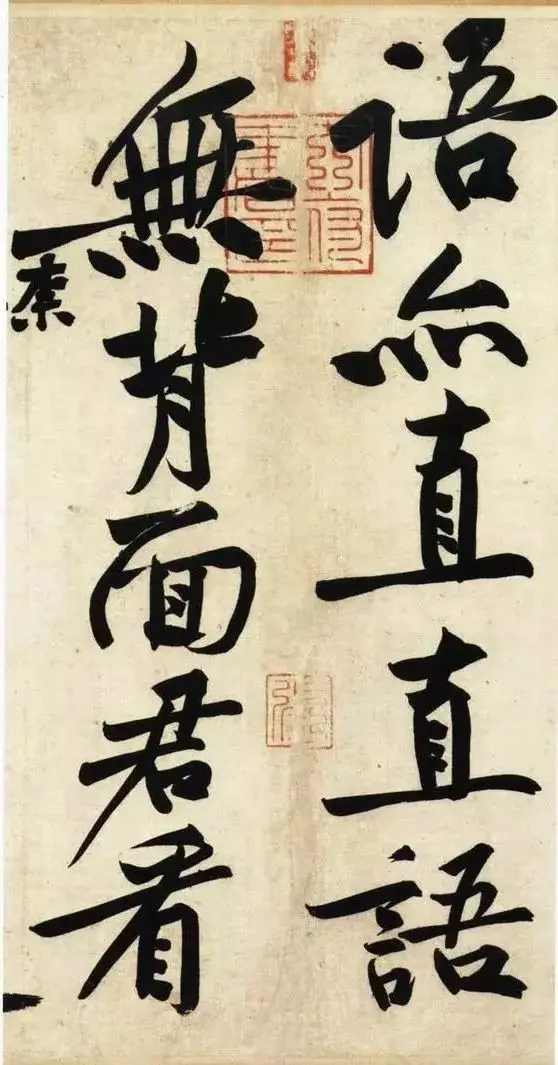 語亦直直語
無背面君看